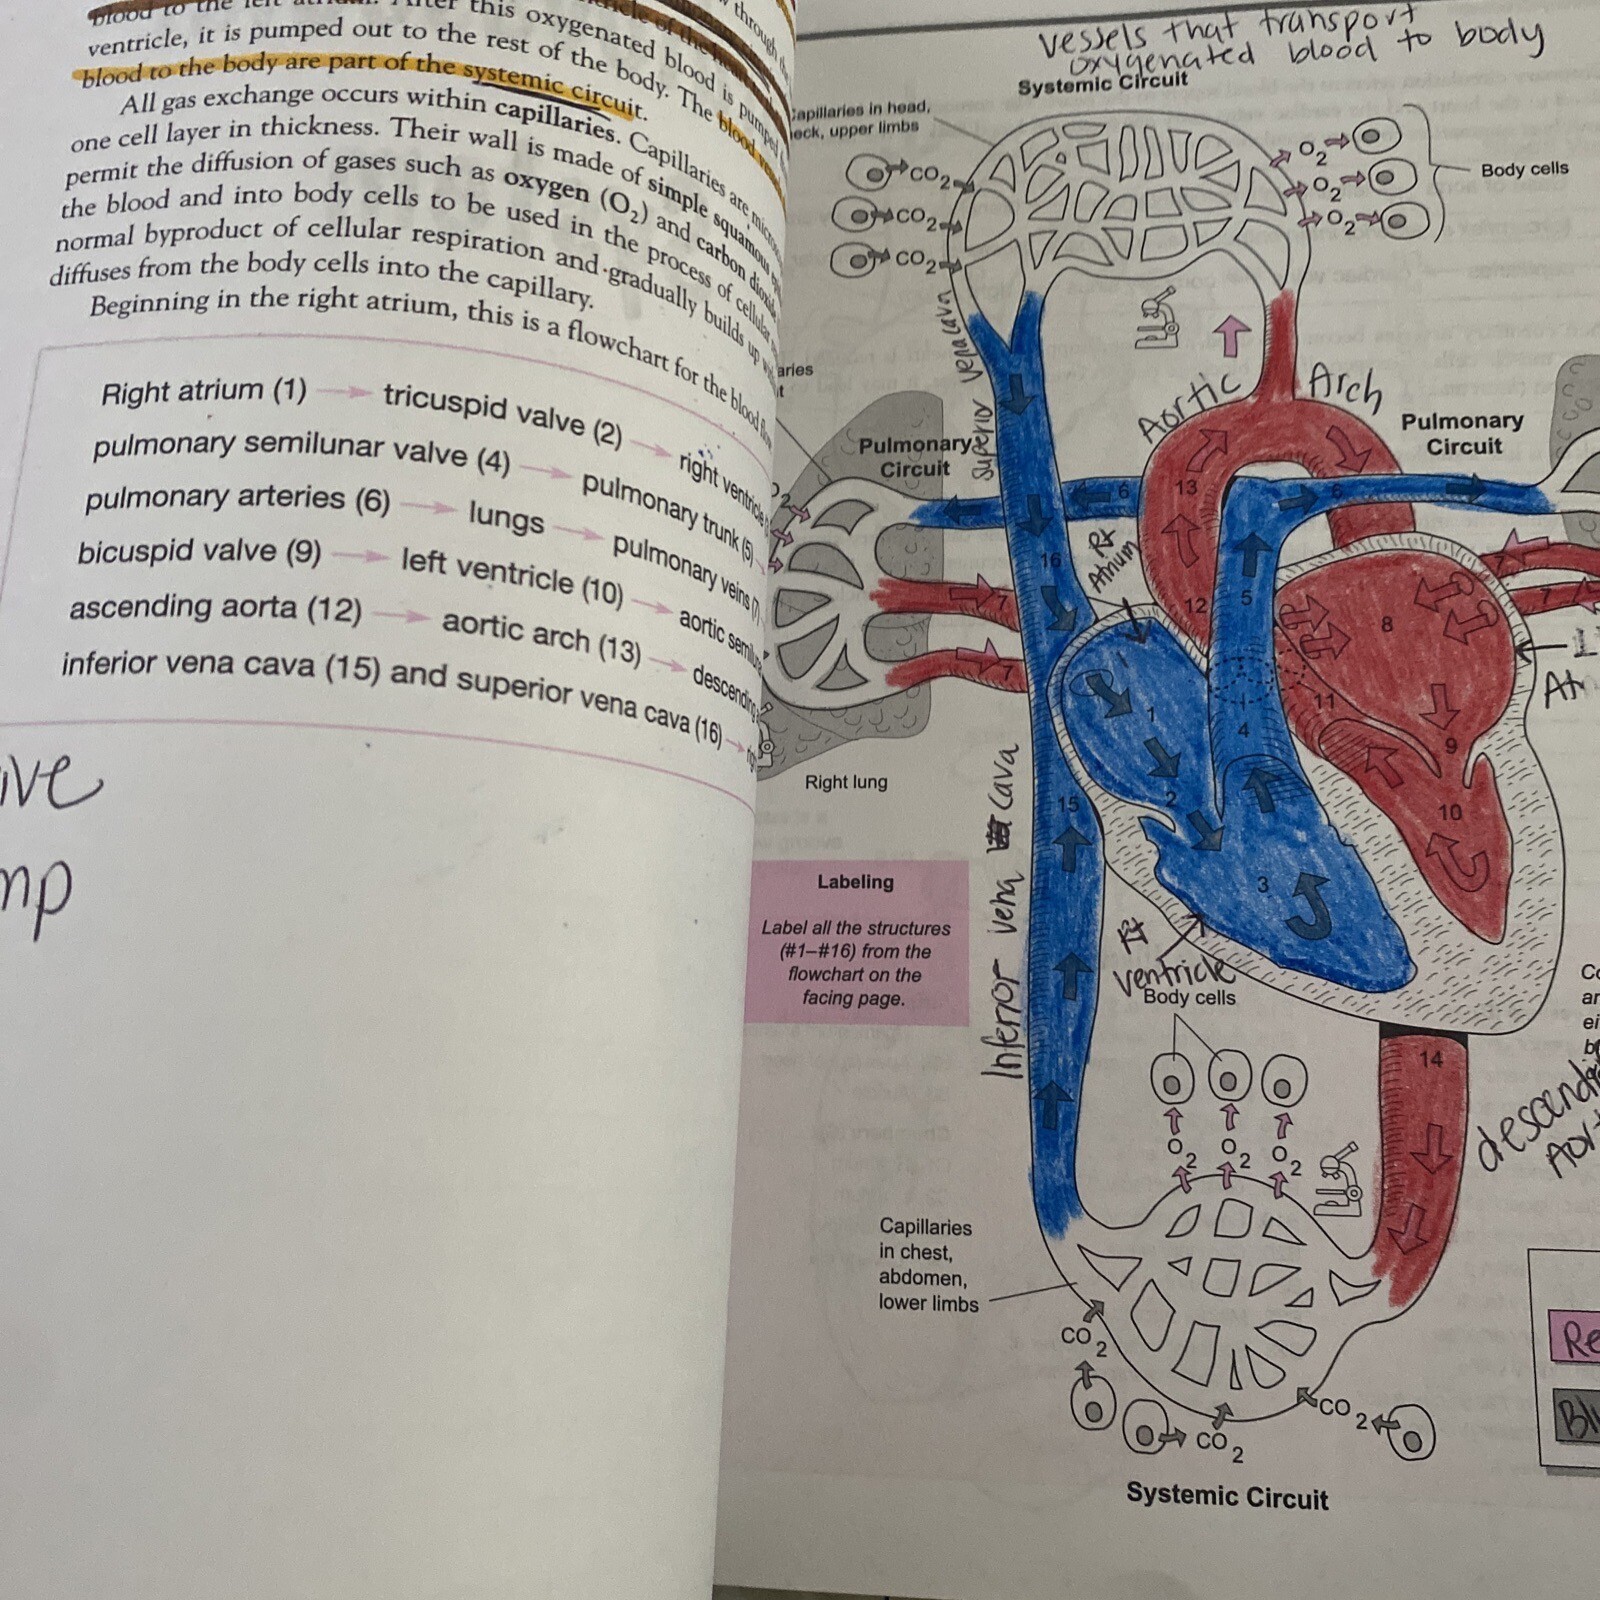 blood to the left atrium. After this oxygenated blood is pumped
ventricle, it is pumped out to the rest of the body. The blood
blood to the body are part of the systemic circuit.
All gas exchange occurs within capillaries. Capillaries are
one cell layer in thickness. Their wall is made of simple squamous
permit the diffusion of gases such as oxygen (O2) and carbon
the blood and into body cells to be used in the process of cellular
normal byproduct of cellular respiration and gradually builds up
diffuses from the body cells into the capillary.
Beginning in the right atrium, this is a flowchart for the blood
Right atrium (1) → tricuspid valve (2) → right ventricle
pulmonary semilunar valve (4) → pulmonary trunk (5)
pulmonary arteries (6) → lungs → pulmonary veins
bicuspid valve (9) → left ventricle (10) → aortic
ascending aorta (12) → aortic arch (13) → descending
inferior vena cava (15) and superior vena cava (16) →
vessels that transport
oxygenated blood to body
Systemic Circuit
Capillaries in head,
neck, upper limbs
CO2
CO2
CO2
O2
O2
O2
Body cells
Superior vena cava
Aortic Arch
Pulmonary
Circuit
Pulmonary
Circuit
6
13
6
16
Rt
Atrium
7
12
5
8
7
7
7
1
4
11
9
2
10
15
3
14
At
Right lung
Inferior vena cava
Labeling
Label all the structures
(#1–#16) from the
flowchart on the
facing page.
Rt
ventricle
Body cells
O2
O2
O2
Capillaries
in chest,
abdomen,
lower limbs
CO2
CO2
CO2
Systemic Circuit